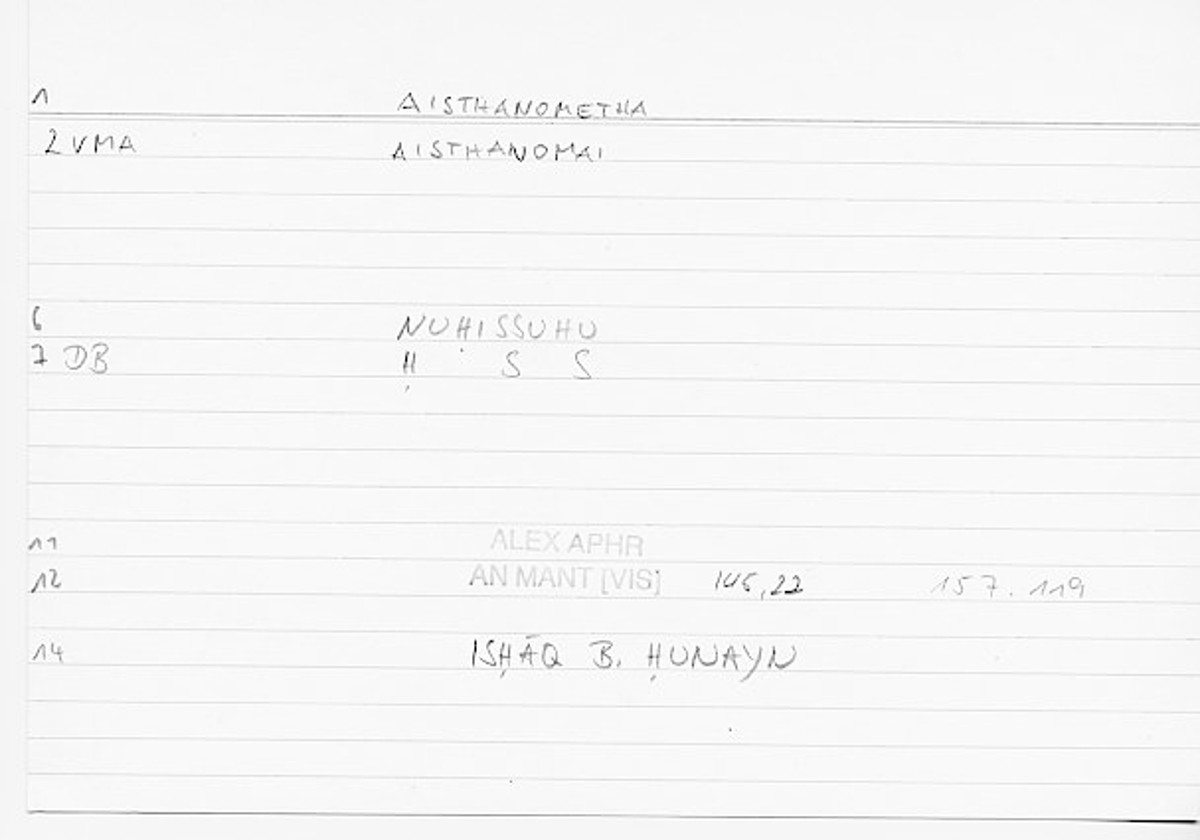 1 AISTHANOMETHA
2 VMA AISTHANOMAI
6 NUḤISSUHU
7 DB Ḥ S S
11 ALEX APHR
12 AN MANT [VIS] 146,22 157.119
14 ISḤĀQ B. ḤUNAYN